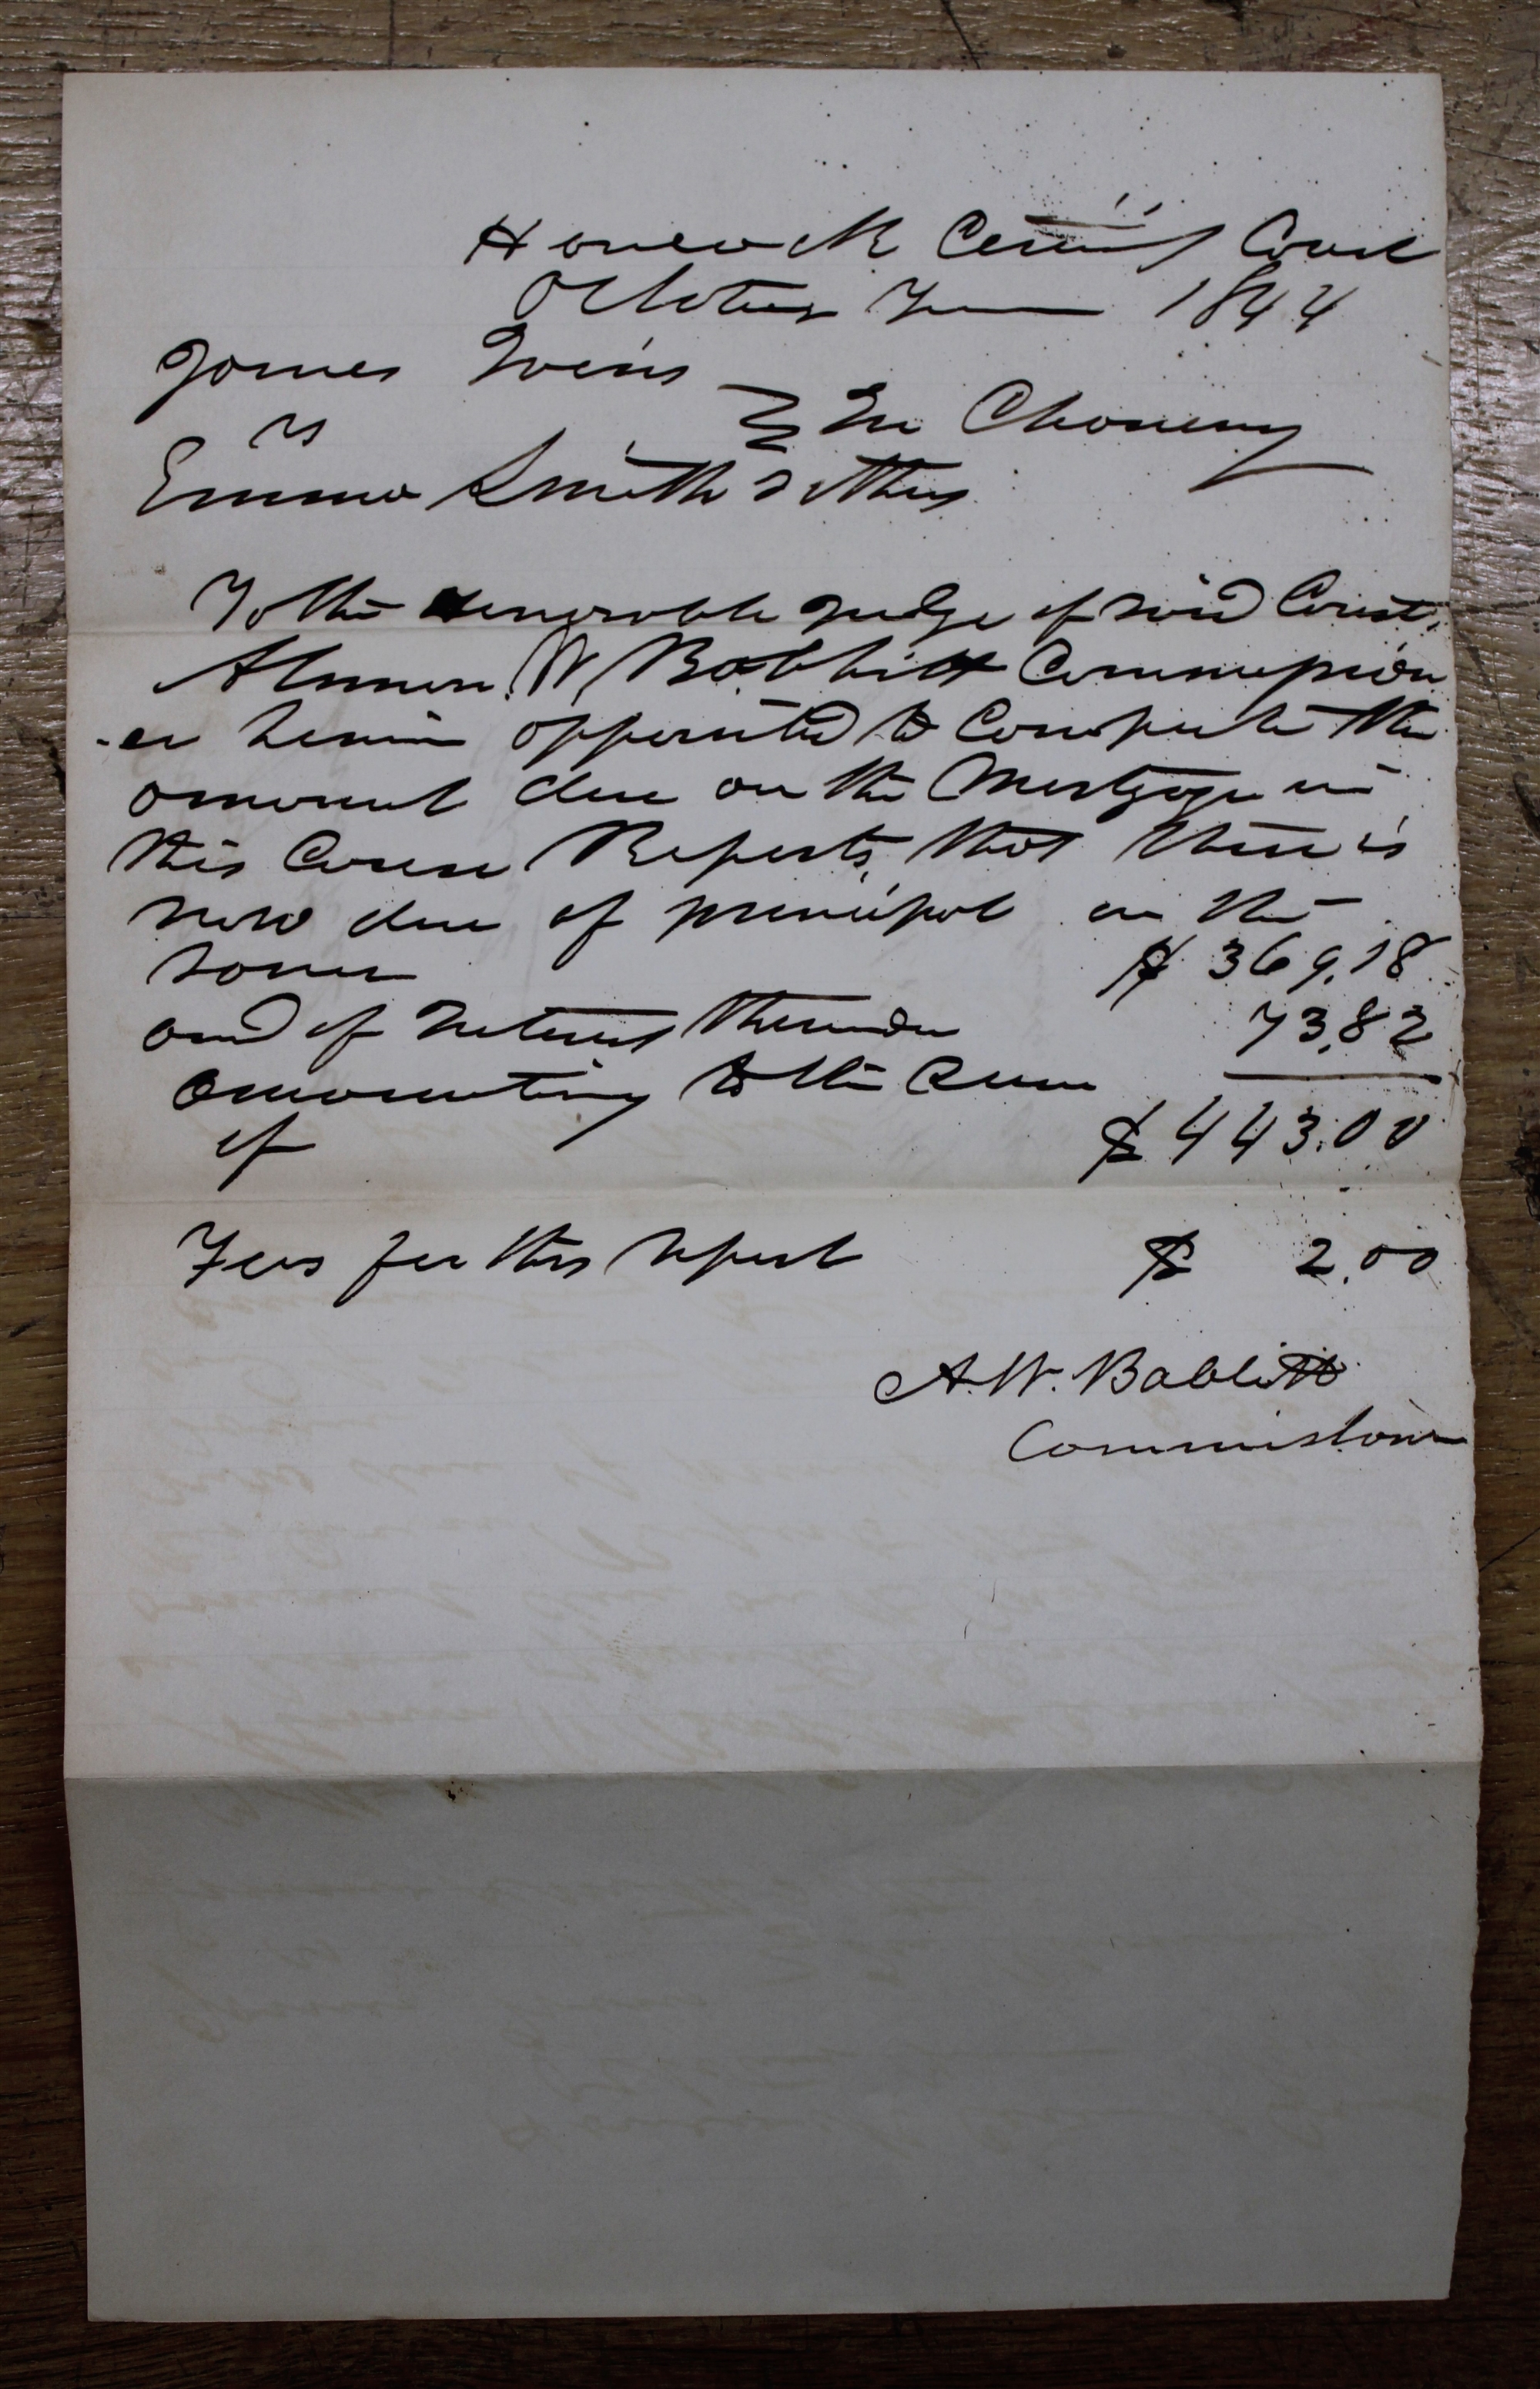 Hancock Circuit Court
October Term 1844
James Ivins
vs
In Chancery
Emma Smith & others
To the Honorable Judge of said Court,
Almon W Babbitt Commission
-er herein appointed to Compute the
amount due on the Mortgage in
this Cause Reports, that there is
now due of principal on the
same $ 369.18
and of Interest thereon 73.82
amounting to the Sum
of $ 443.00
Fees for this report $ 2.00
A. W. Babbitt
Commissioner